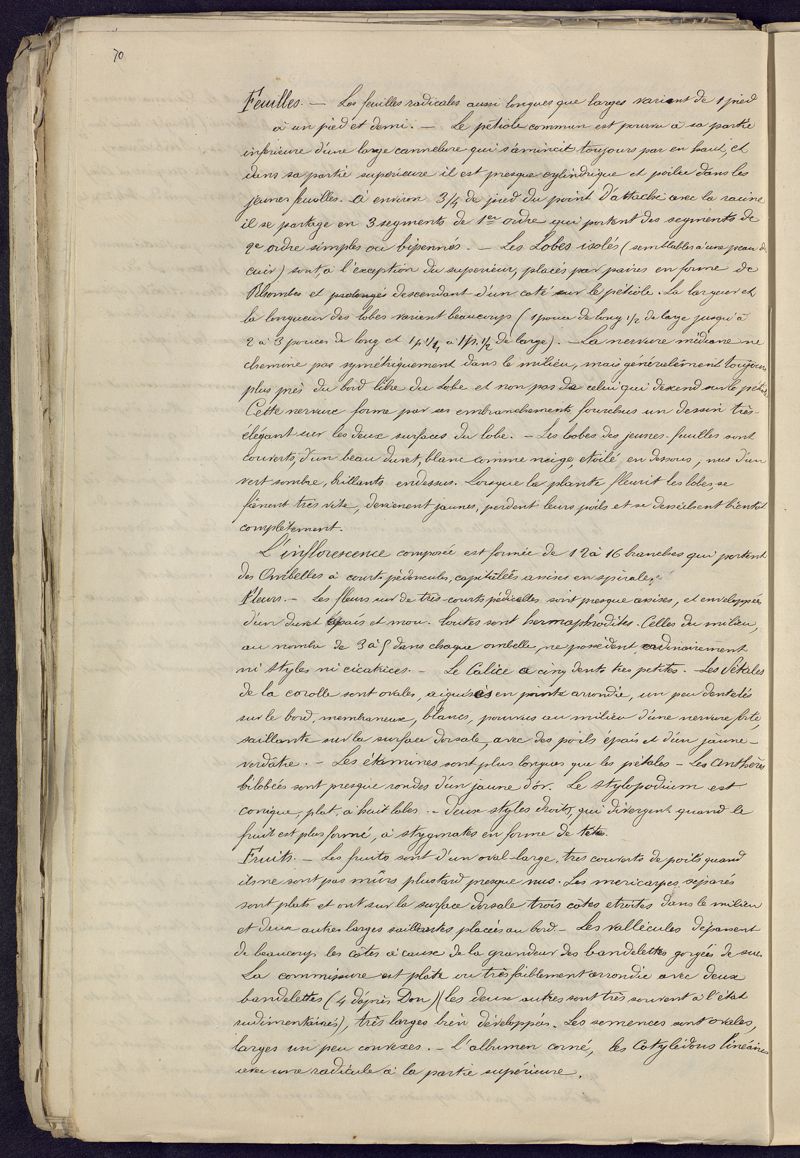 70
Feuilles. — Les feuilles radicales aussi longues que larges varient de 1 pied
à un pied et demi. — Le pétiole commun est pourvu à sa partie
inférieure d'une large cannelure qui s'amincit toujours par en haut, et
dans sa partie supérieure il est presque cylindrique et poilu dans les
jeunes feuilles. à environ 3/4 de pied du point d'attache avec la racine
il se partage en 3 segments de 1er ordre qui portent des segments de
2e ordre simples ou bipennés. — Les Lobes isolés (semblables à une peau de
cuir) sont, à l'exception du supérieur, placés par paires en forme de
Rhombes et prolongés descendant d'un coté sur le pétiole. La largueur et
la longueur des lobes varient beaucoup (1 pouce de long 1/2 de large jusqu'à
2 à 3 pouces de long et 1 p. 1/4 à 1 p. 1/2 de large). — La nervure médiane ne
chemine pas symétriquement dans le milieu, mais généralement toujours
plus près du bord libre du lobe et non pas de celui qui descend sur le pétiole
Cette nervure forme par ses embranchements fourchus un dessin très-
élégant sur les deux surfaces du lobe. — Les lobes des jeunes feuilles sont
couverts, d'un beau duvet, blanc comme neige, etoilé en dessous, nus d'un
vert sombre, brillants endessus. Lorsque la plante fleurit les lobes, se
fânent très vite, deviennent jaunes, perdent leurs poils et se dessèchent bientot
complètement.
L'inflorescence composée est formée de 12 à 16 branches qui portent
des Ombelles à courts pédoncules, capitulées assises en spirale.
Fleurs. — Les fleurs sur de très-courts pédicelles sont presque assises, et enveloppées
d'un duvet épais et mou. toutes sont hermaphrodites. Celles du milieu,
au nombre de 3 à 5 dans chaque ombelle, ne possèdent ordinairement
ni styles ni cicatrices. — Le Calice a cinq dents très petites. — Les Pétales
de la corolle sont ovales, aiguisés en pointe arrondie, un peu dentelés
sur le bord, membraneux, blancs, pourvus au milieu d'une nervure forte,
saillante sur la surface dorsale, avec des poils épais et d'un jaune-
verdâtre. — Les étamines sont plus longues que les pétales — Les Anthères
bilobées sont presque rondes d'un jaune d'or. Le stylopodium est
conique, plat, à huit lobes. — deux styles droits, qui divergent quand le
fruit est plus formé, à stygmates en forme de tête.
Fruits. — Les fruits sont d'un oval-large, très couverts de poils quand
ils ne sont pas mûrs plus tard presque nus. Les méricarpes séparés
sont plats et ont sur la surface dorsale trois côtes étroites dans le milieu
et deux autres larges saillantes, placés au bord — Les vallécules dépassent
de beaucoup les côtes à cause de la grandeur des bandelettes gorgées de suc.
La commissure est plate ou très faiblement arrondie avec deux
bandelettes (4 d'après Don) (les deux autres sont très souvent à l'état
rudimentaires), très larges bien développés. Les semences sont ovales,
larges un peu convexes. — L'albumen corné, les Cotylédons linéaires
avec une radicule à la partie supérieure.